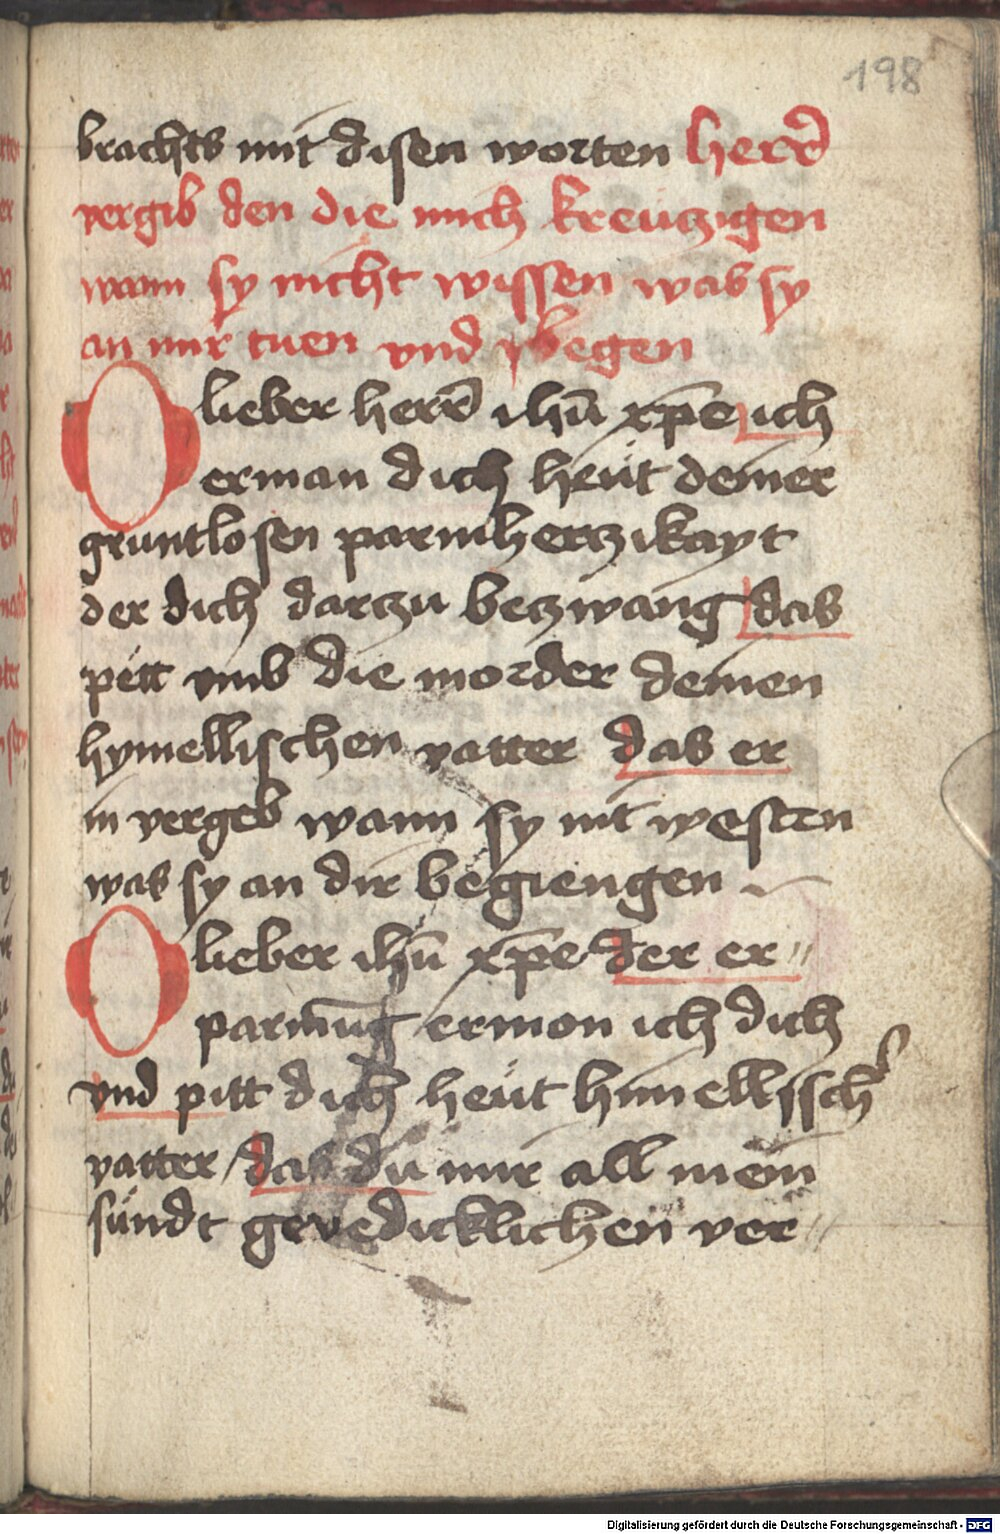 198
brachts mit disen worten herr̄
vergib den die mich kreützigen
wann sy nicht wissen was sy
an mir tuen vnd begen
O lieber herr̄ ihū xp̄e ich
erman dich heüt deiner
gruntlosen parmhertzikayt
der dich dartzu betzwang das
pitt vmb die morder deinen
hymellischen vatter das er
in vergeb wann sy nit westen
was sy an dir begiengen
O lieber ihū xp̄e der er⸗
parmūg ermon ich dich
vnd pitt dich heüt himellisch
vatter das du mir all mein
sündt genedicklichen ver⸗
Digitalisierung gefördert durch die Deutsche Forschungsgemeinschaft - DFG